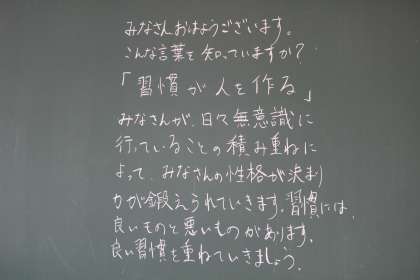 みなさんおはようございます。
こんな言葉を知っていますか？
「習慣が人を作る」
みなさんが、日々無意識に
行っていることの積み重ねに
よって、みなさんの性格が決まり
力が鍛えられていきます。習慣には、
良いものと悪いものがあります。
良い習慣を重ねていきましょう。